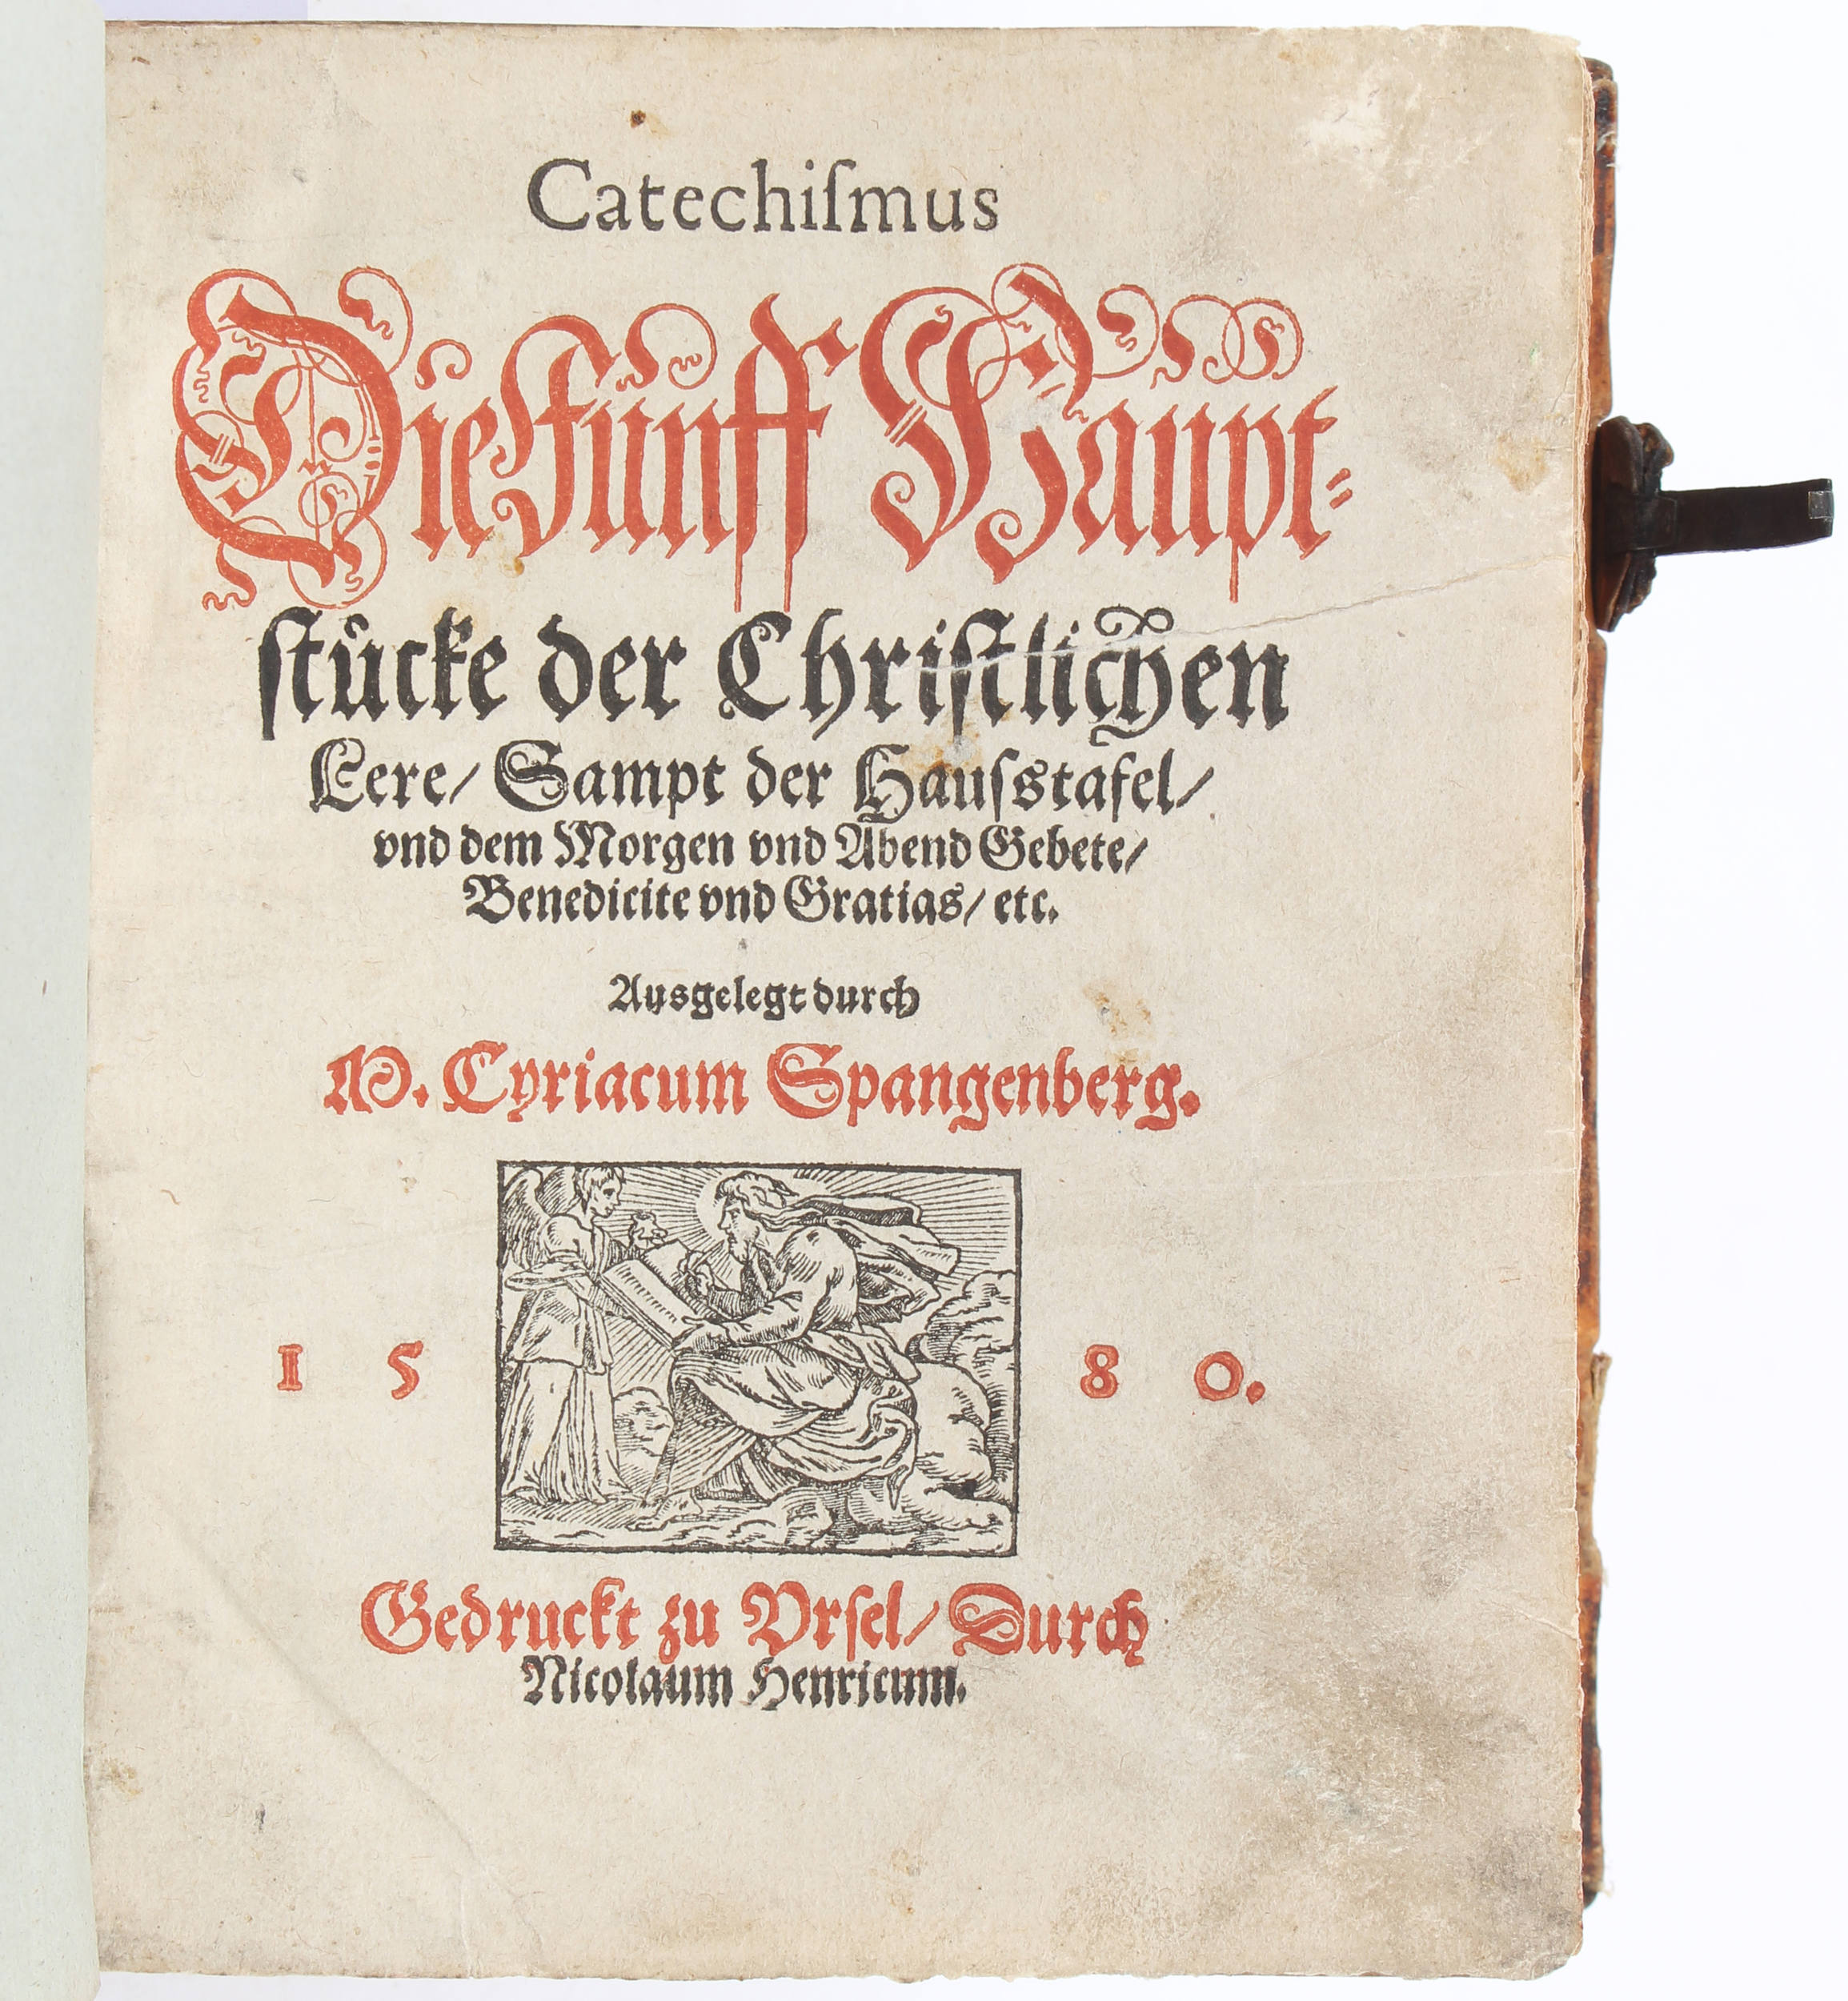 Catechiſmus
Die fünff Haupt⸗
ſtuͤcke der Chriſtlichen
Lere/ Sampt der Hauſstafel/
vnd dem Morgen vnd Abend Gebete/
Benedicite vnd Gratias/ etc.
Ausgelegt durch
M. Cyriacum Spangenberg.
1 5 8 0.
Gedruckt zu Vrſel/ Durch
Nicolaum Henricum.